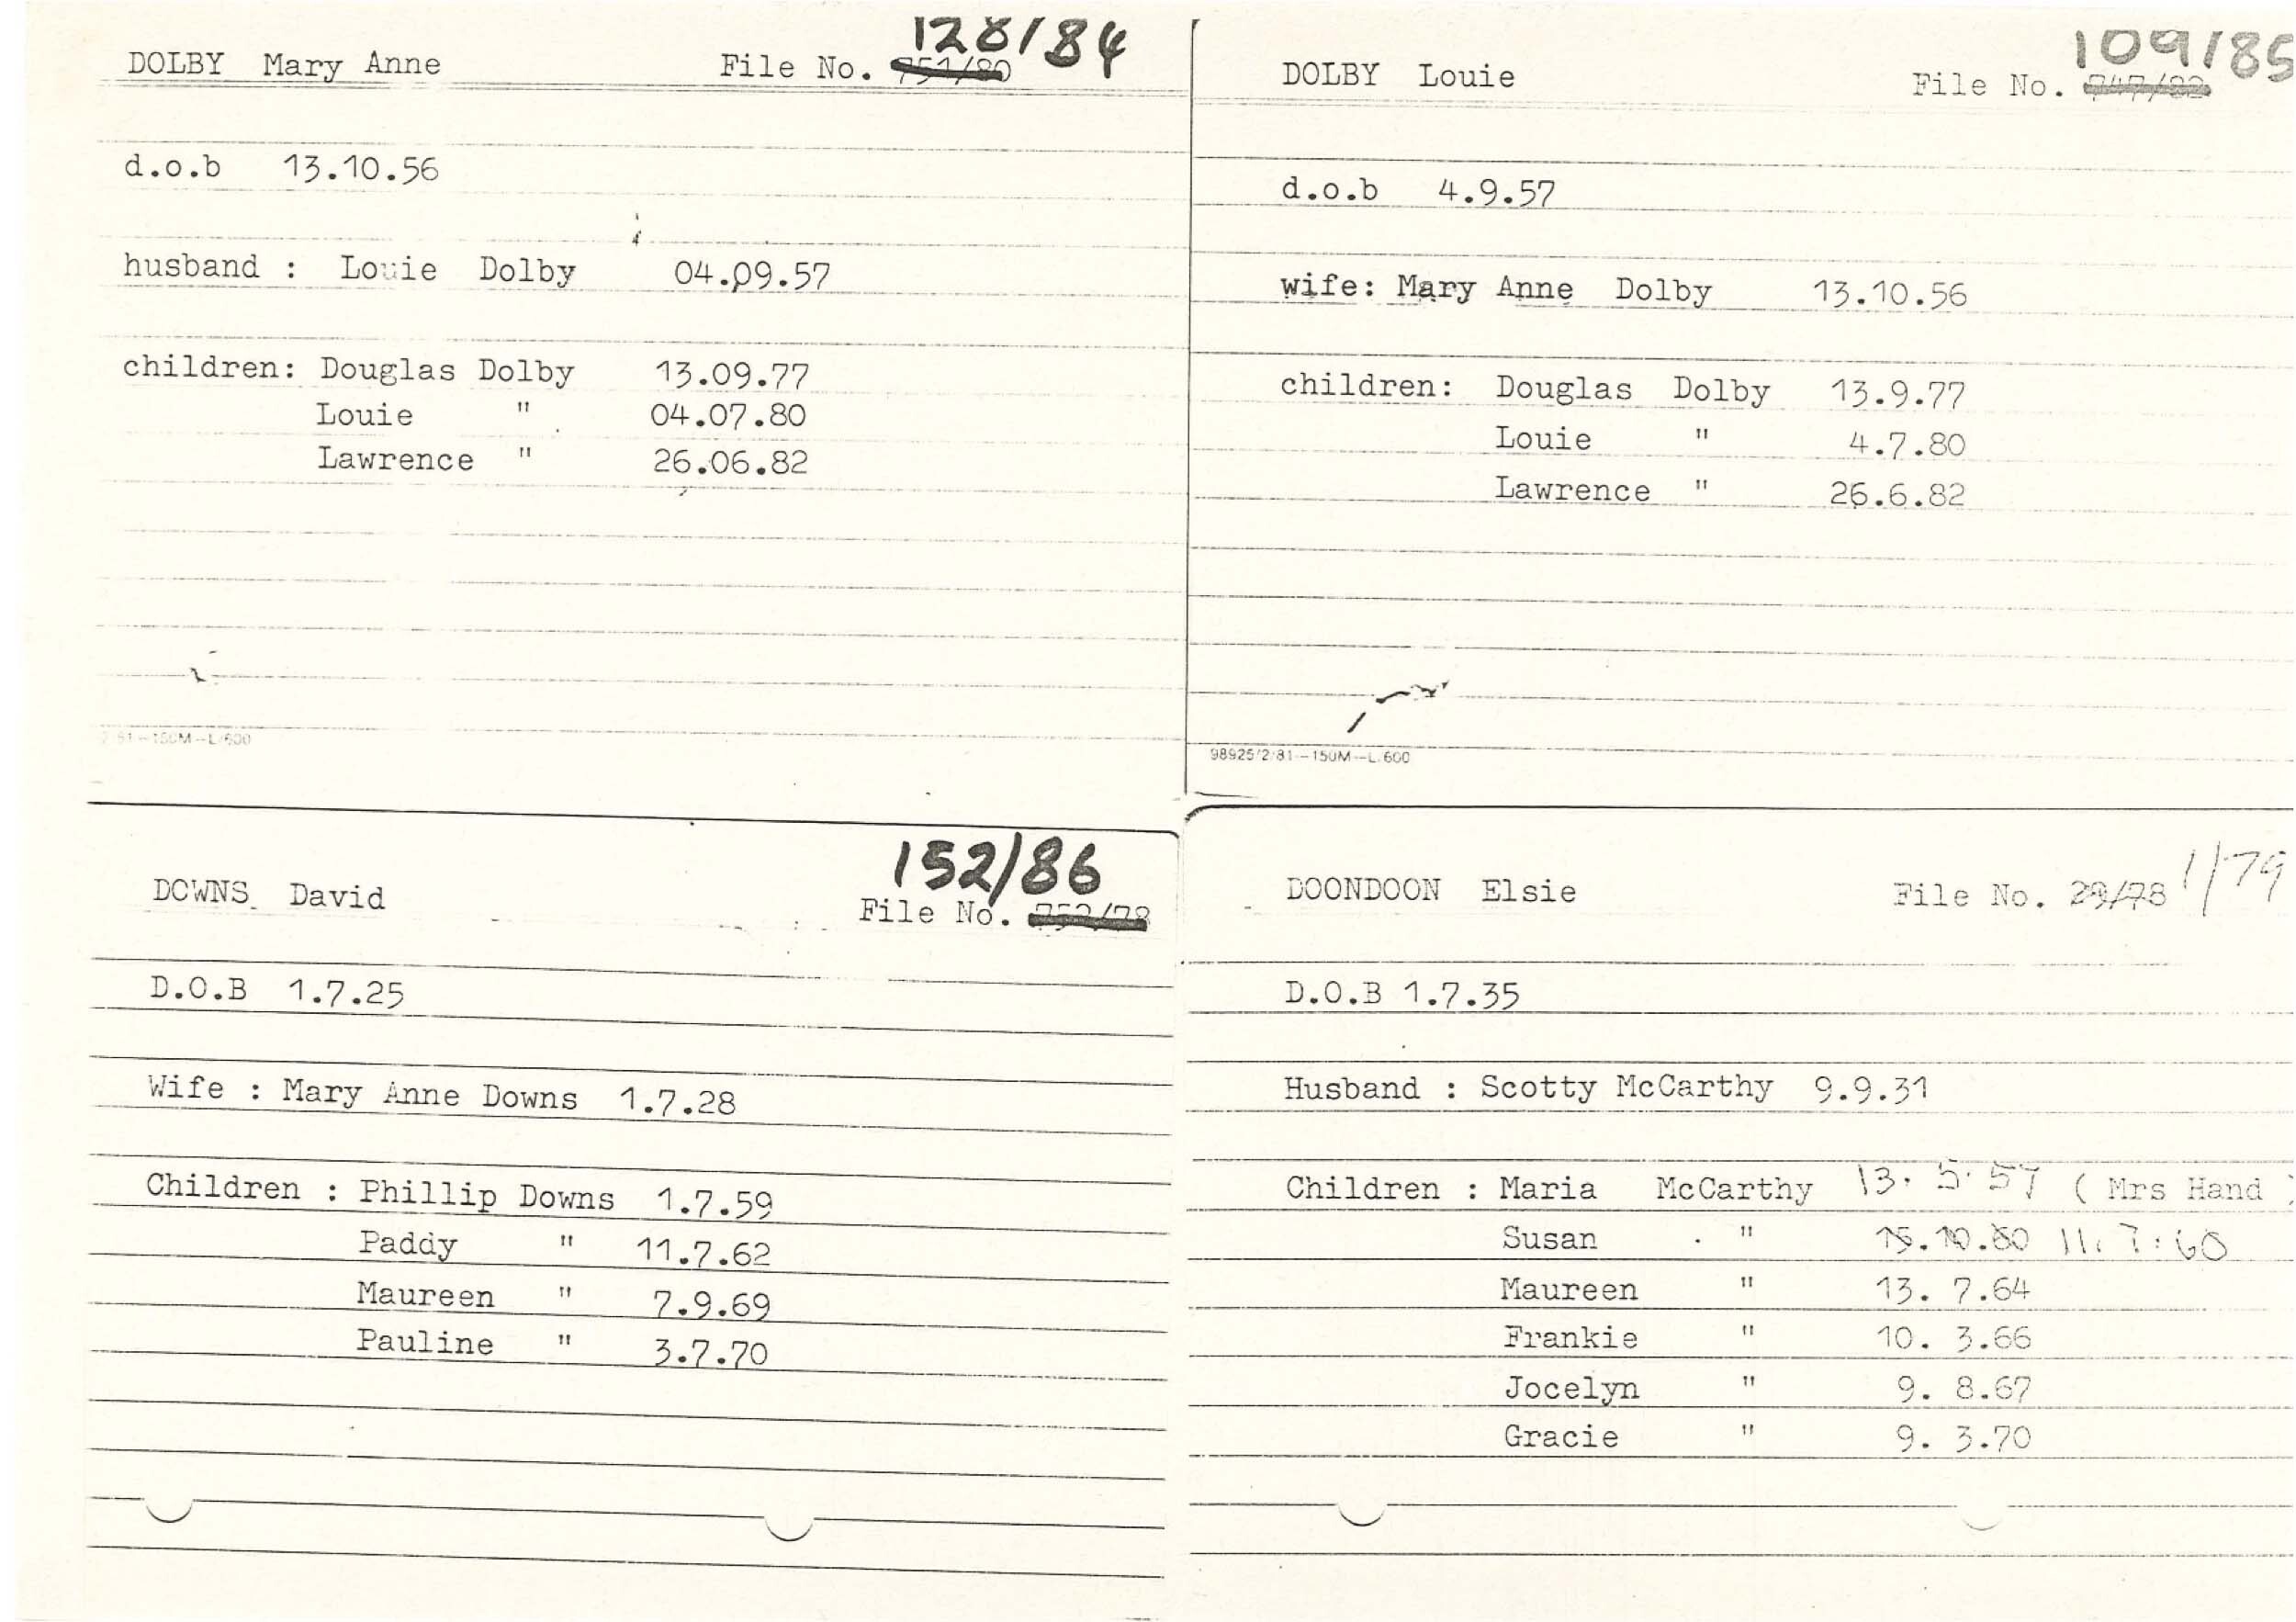 128/84
DOLBY Mary Anne File No. 751/80
d.o.b 13.10.56
husband : Louie Dolby 04.09.57
children: Douglas Dolby 13.09.77
Louie " 04.07.80
Lawrence " 26.06.82
2/81—150M—L/600
109/85
DOLBY Louie File No.
d.o.b 4.9.57
wife: Mary Anne Dolby 13.10.56
children: Douglas Dolby 13.9.77
Louie " 4.7.80
Lawrence " 26.6.82
98925/2/81—150M—L/600
152/86
DOWNS David File No.
D.O.B 1.7.25
Wife : Mary Anne Downs 1.7.28
Children : Phillip Downs 1.7.59
Paddy " 11.7.62
Maureen " 7.9.69
Pauline " 3.7.70
DOONDOON Elsie File No. 29/78 1/79
D.O.B 1.7.35
Husband : Scotty McCarthy 9.9.31
Children : Maria McCarthy 13.5.57 ( Mrs Hand )
Susan " 15.10.60 11.7.60
Maureen " 13. 7.64
Frankie " 10. 3.66
Jocelyn " 9. 8.67
Gracie " 9. 3.70